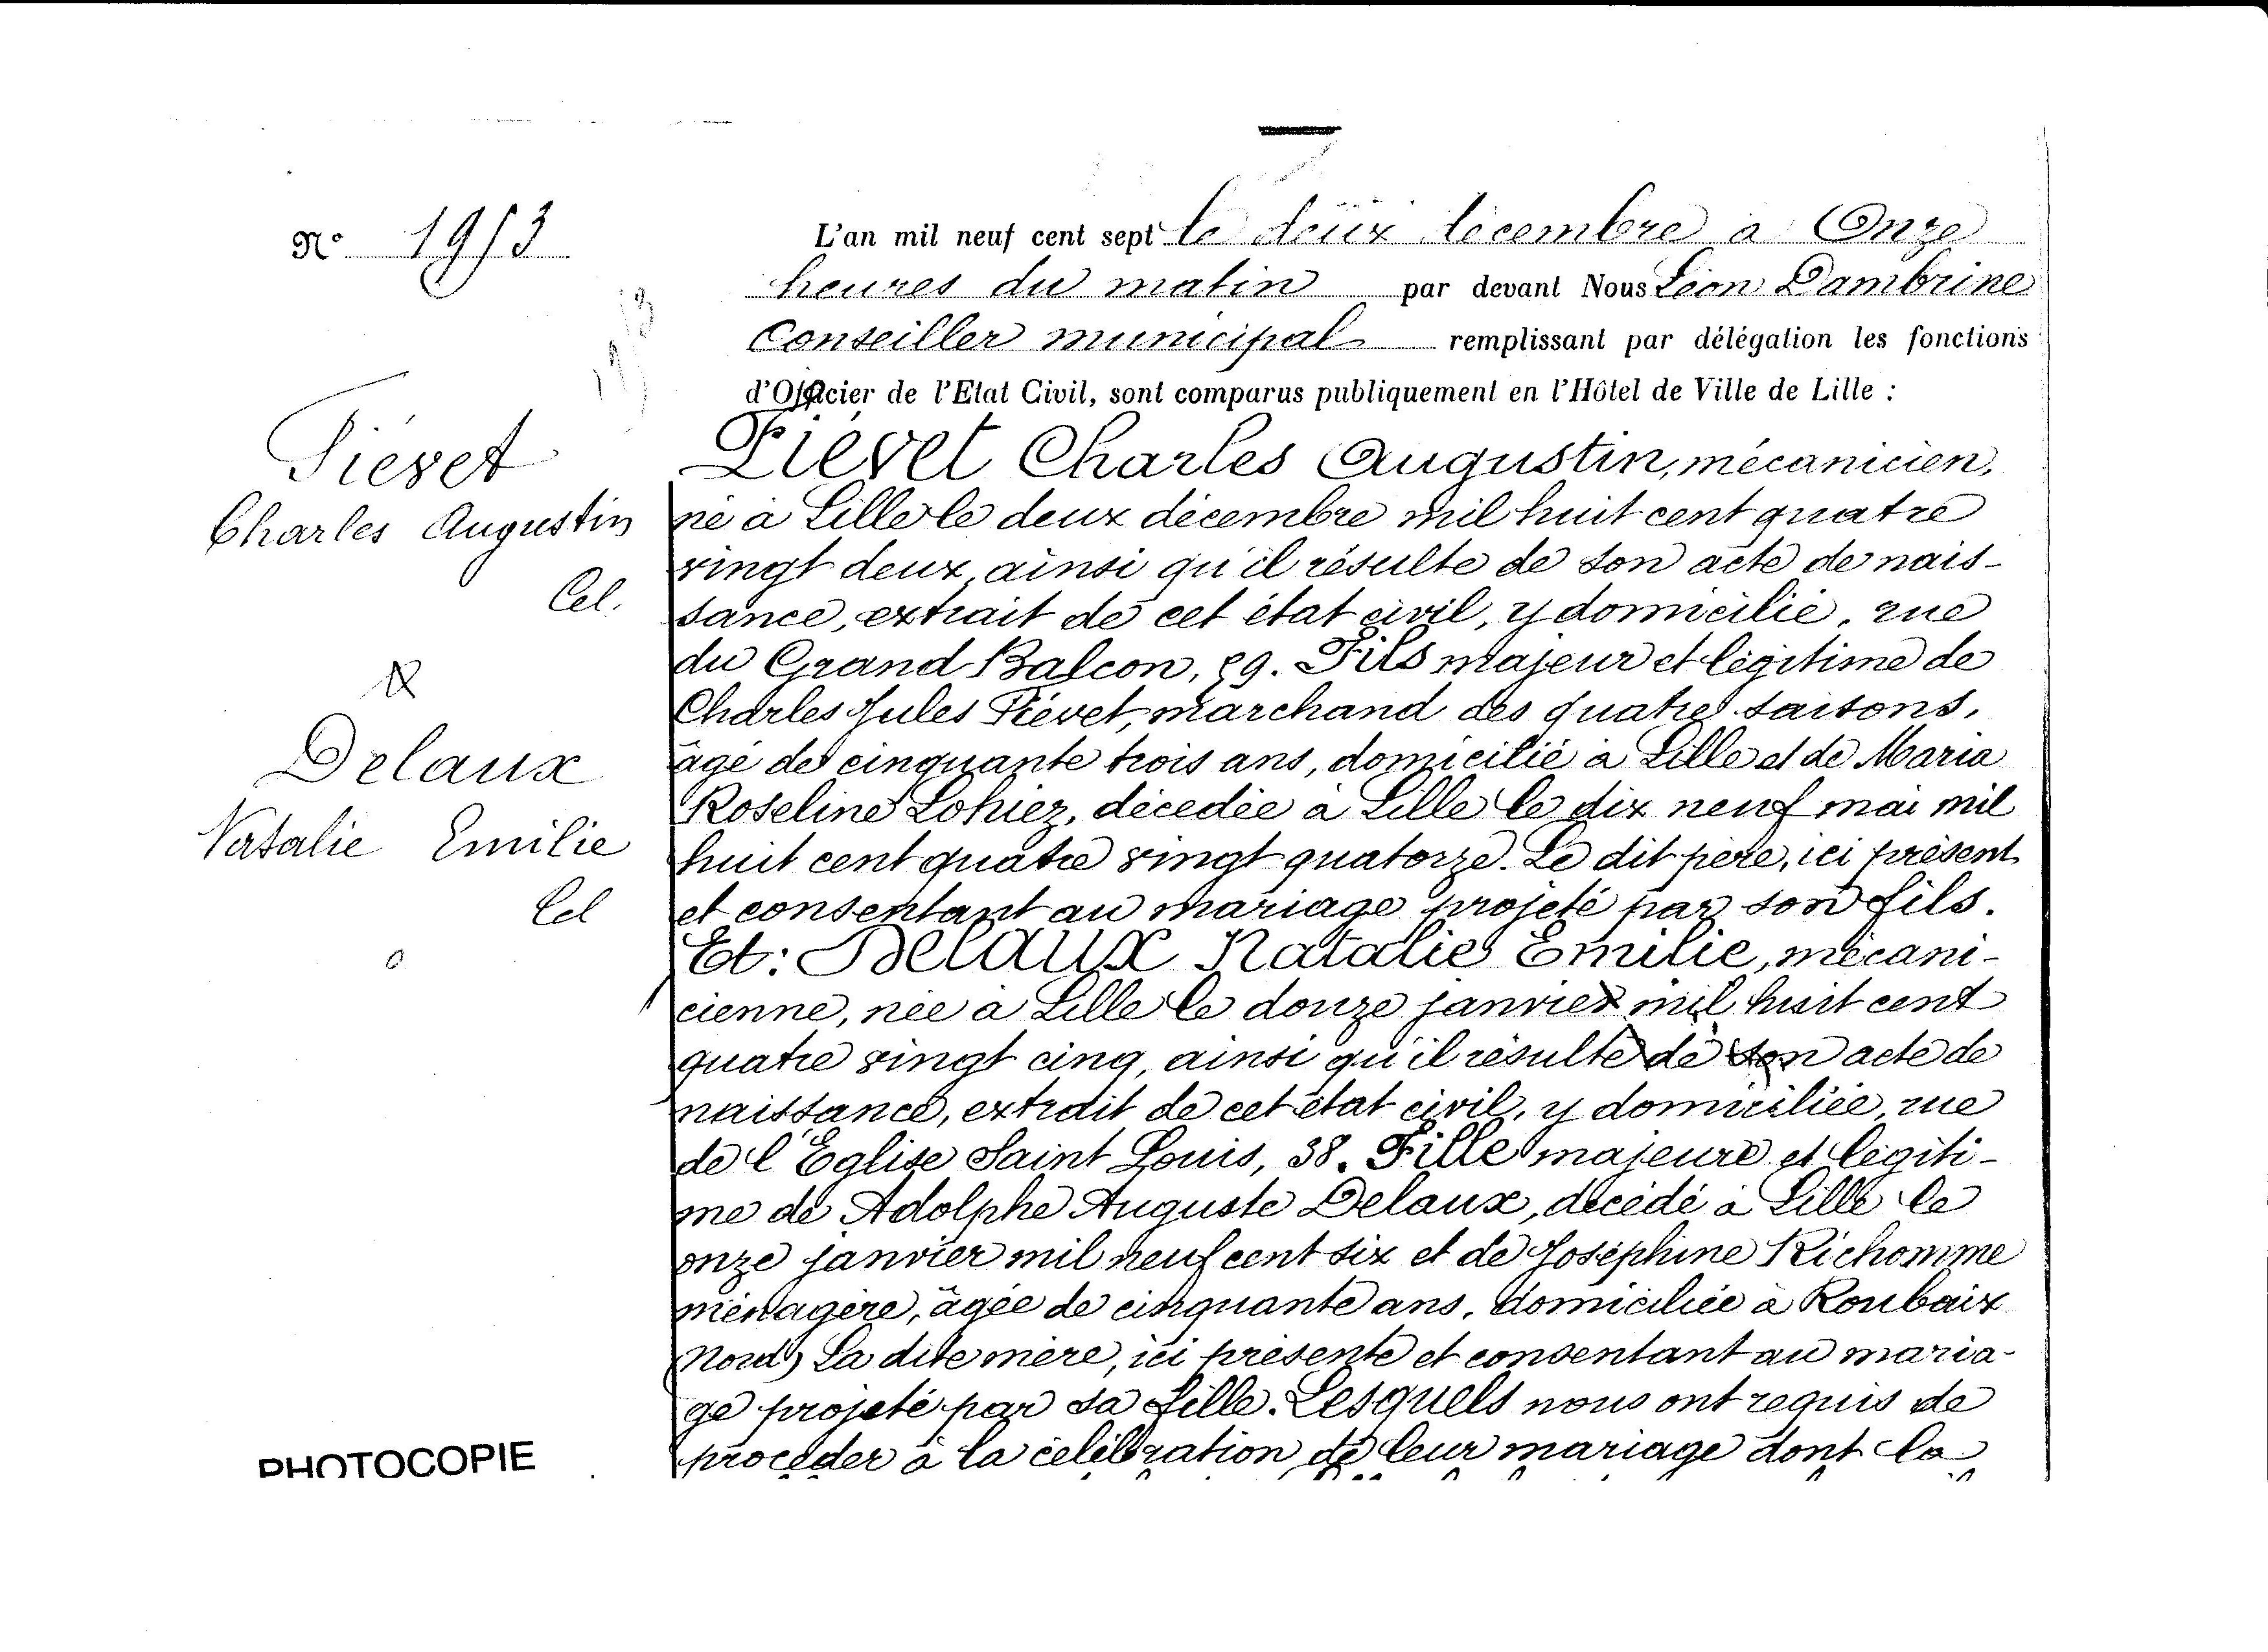 N° 1953
L'an mil neuf cent sept le deux décembre à Onze
heures du matin par devant Nous Léon Dambrine
Conseiller municipal remplissant par délégation les fonctions
d'Officier de l'Etat Civil, sont comparus publiquement en l'Hôtel de Ville de Lille :
Fiévet
Charles Augustin
Cel.
&
Delaux
Natalie Emilie
Cel
Fiévet Charles Augustin, mécanicien,
né à Lille le deux décembre mil huit cent quatre
vingt deux, ainsi qu'il résulte de son acte de nais-
sance, extrait de cet état civil, y domicilié, rue
du Grand Balcon, 59. Fils majeur et légitime de
Charles Jules Fiévet, marchand des quatre saisons,
âgé de cinquante trois ans, domicilié à Lille et de Maria
Roseline Lohiez, décédée à Lille le dix neuf mai mil
huit cent quatre vingt quatorze. Le dit père, ici présent
et consentant au mariage projeté par son fils.
Et: Delaux Natalie Emilie, mécani-
cienne, née à Lille le douze janvier mil huit cent
quatre vingt cinq, ainsi qu'il résulte de son acte de
naissance, extrait de cet état civil, y domiciliée, rue
de l'Eglise Saint Louis, 38. Fille majeure et légiti-
me de Adolphe Auguste Delaux, décédé à Lille le
onze janvier mil neuf cent six et de Joséphine Richomme
ménagère, âgée de cinquante ans, domiciliée à Roubaix
(Nord) La dite mère, ici présente et consentant au maria-
ge projeté par sa fille. Lesquels nous ont requis de
procéder à la célébration de leur mariage dont la
PHOTOCOPIE